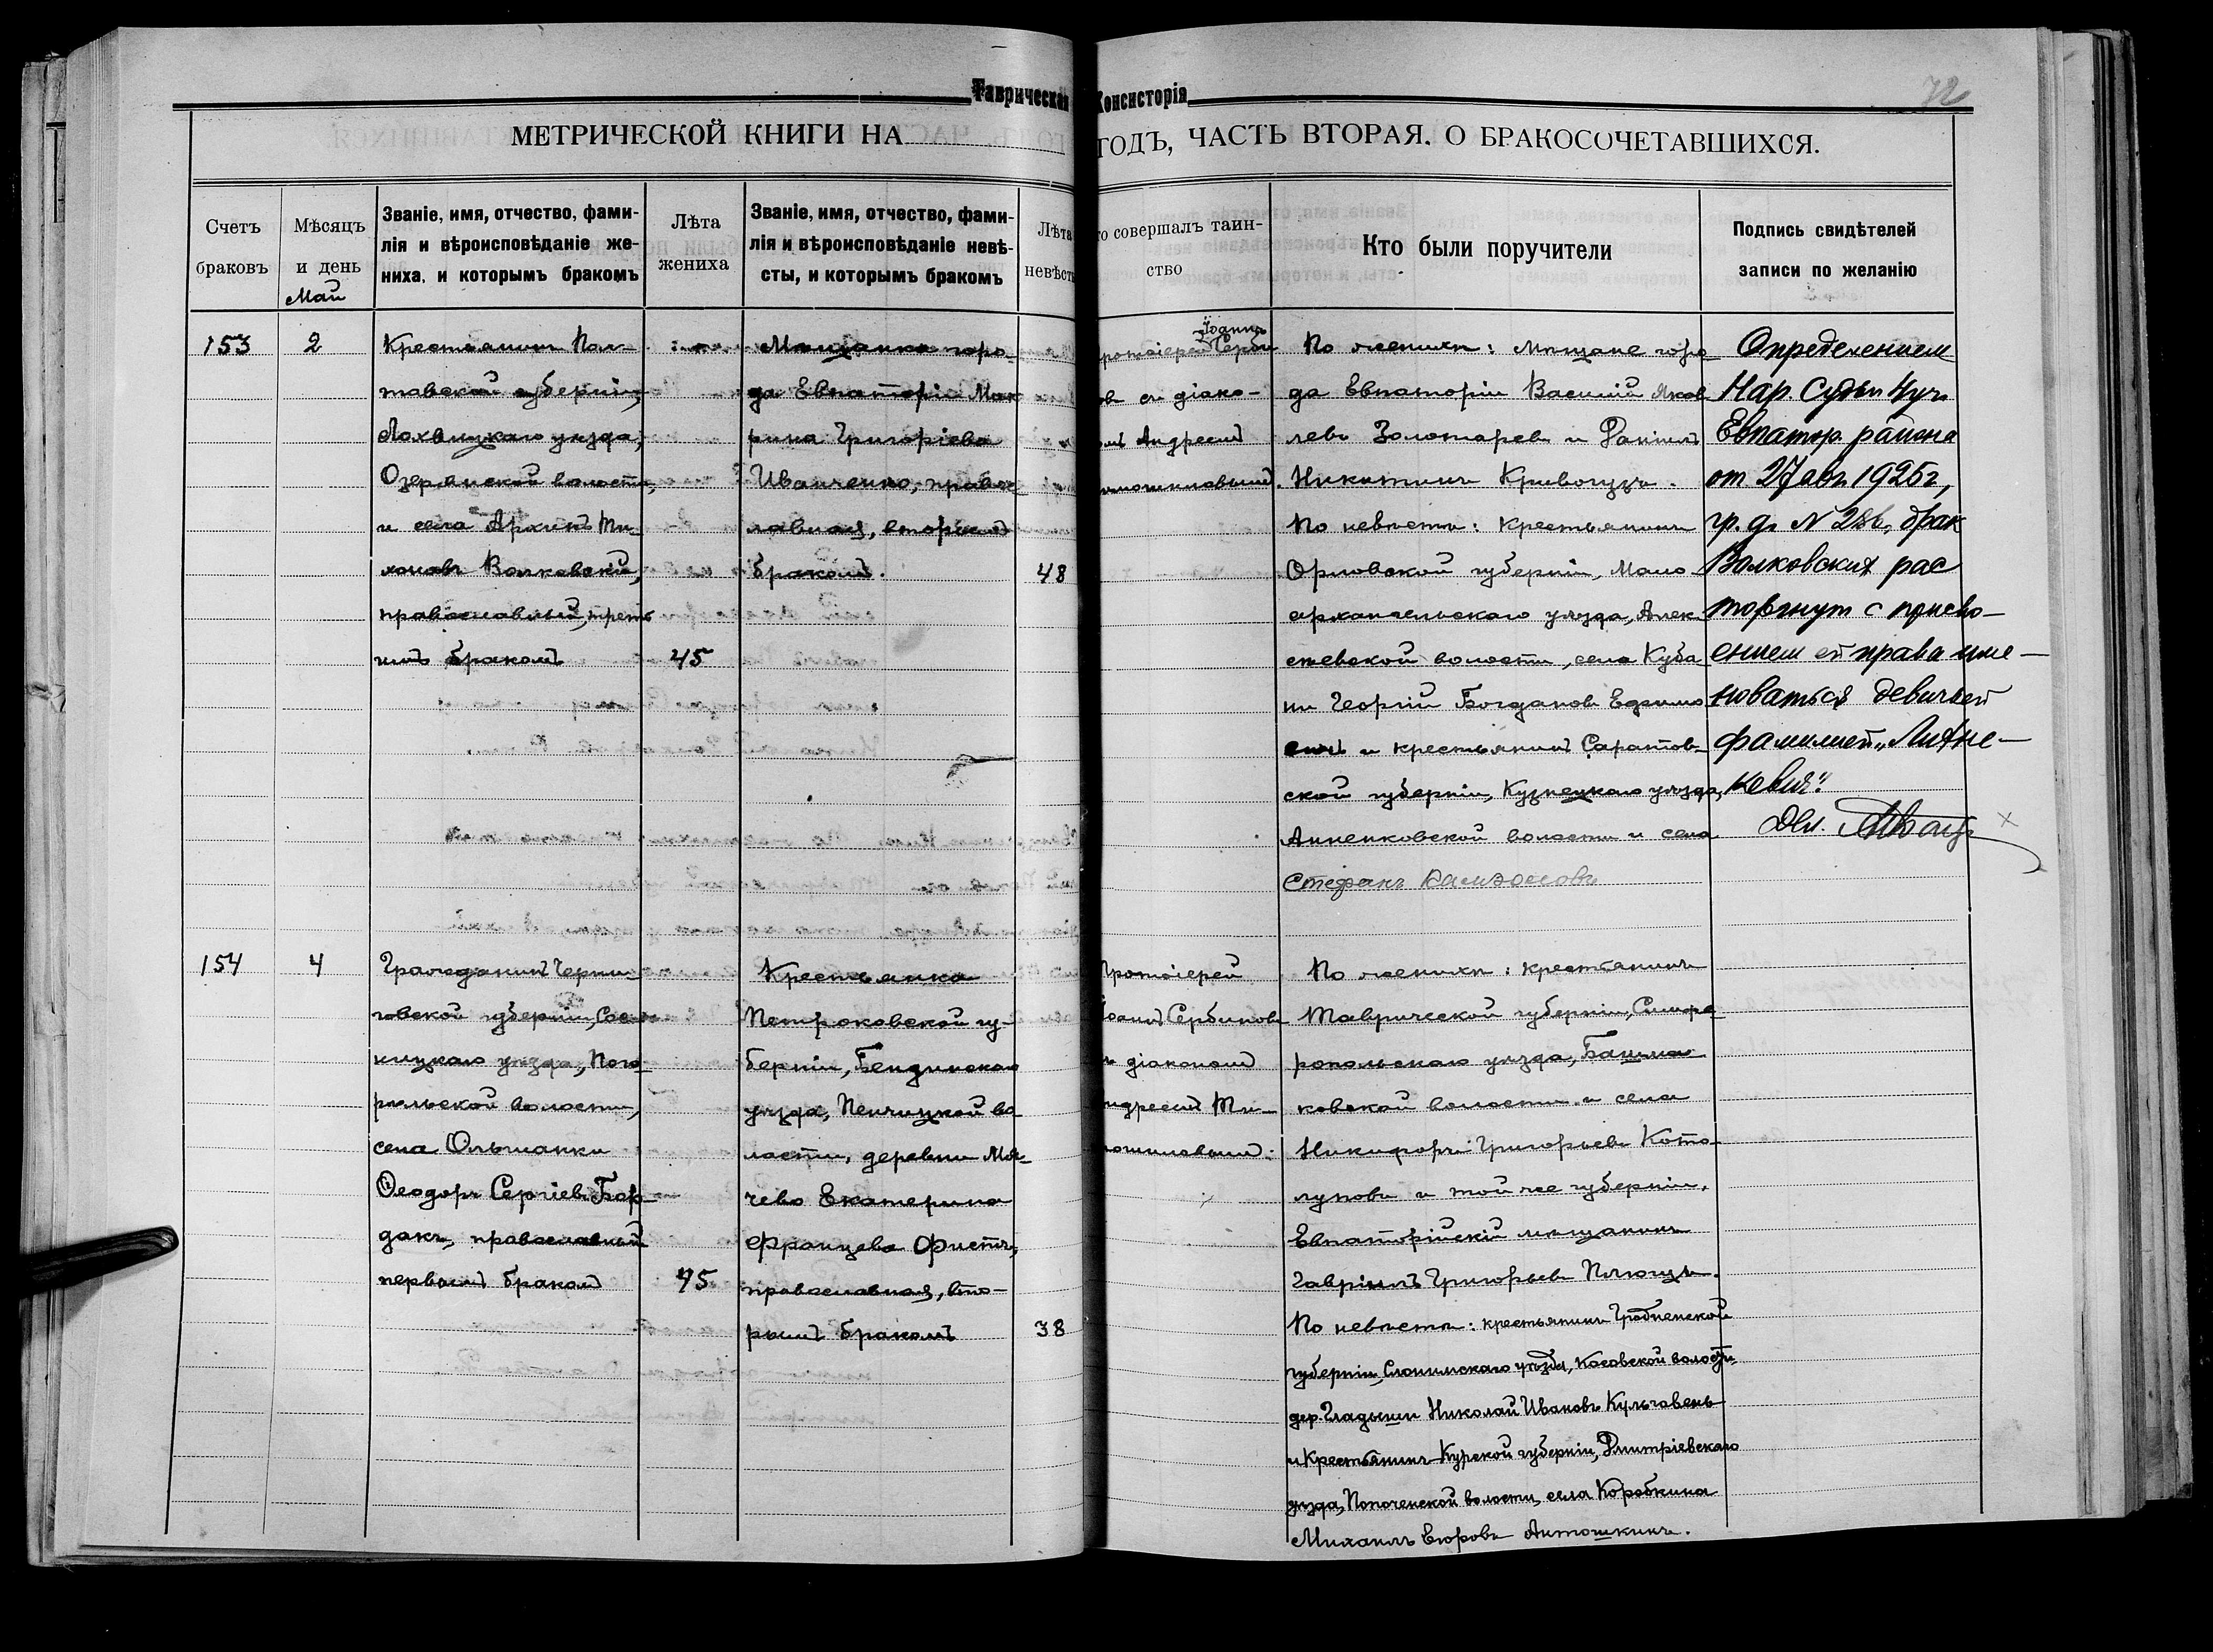 Таврическая Консисторія
72
МЕТРИЧЕСКОЙ КНИГИ НА ГОДЪ, ЧАСТЬ ВТОРАЯ. О БРАКОСОЧЕТАВШИХСЯ.
Счетъ
браковъ
Мѣсяцъ
и день
Май
Званіе, имя, отчество, фами-
лія и вѣроисповѣданіе же-
ниха, и которымъ бракомъ
Лѣта
жениха
Званіе, имя, отчество, фами-
лія и вѣроисповѣданіе невѣ-
сты, и которымъ бракомъ
Лѣта
невѣсты
то совершалъ таин-
ство
Кто были поручители
Подпись свидѣтелей
записи по желанію
153
2
Крестьянинъ Пол-
тавской губерніи,
Лохвицкаго уѣзда,
Озерянской волости,
и села Архипъ Ти-
хоновъ Волковскій,
православный, треть-
имъ бракомъ
45
Мѣщанка горо-
да Евпаторіи Мак
рина Григоріева
Иванченко, правос-
лавная, вторымъ
бракомъ.
48
Іоаннъ
ротоіерей Серби
овъ съ діако-
омъ Андреемъ
имошиловымъ.
По женихѣ: мѣщане горо-
да Евпаторіи Василій Яков
левъ Золотаревъ и Даніилъ
Никитинъ Кривогузъ.
По невѣстѣ: крестьянинъ
Орловской губерніи, Мало
архангельскаго уѣзда, Алек
сѣевской волости, села Куба
ни Георгій Богдановъ Ефимо
синъ и крестьянинъ Саратов-
ской губерніи, Кузнецкаго уѣзда,
Анненковской волости и села
Стефанъ
Определением
Нар. Судьи 4 уч.
Евпатор. района
от 27 авг 1925 г,
гр. д. N 286, брак
Волковских рас
торгнут с присво-
ением ей права име-
новаться девичьей
фамилией
Дел.
154
4
Гражданинъ Черни-
говской губерніи, Сос-
ницкаго уѣзда, Пого-
рѣльской волости,
села Ольшанки
Ѳеодоръ Сергіевъ Бор-
дакъ, православный
первымъ бракомъ
45
Крестьянка
Петроковской гу-
берніи, Бендинскаго
уѣзда, Пенчицкой во-
лости, деревни Мо-
чево Екатерина
Францева Фистъ,
православная, вто-
рымъ бракомъ
38
Протоіерей
Іоаннъ Сербиновъ
ъ діакономъ
ндреемъ Ти-
мошиловымъ.
По женихѣ: крестьянинъ
Таврической губерніи, Симфе-
ропольскаго уѣзда, Башма-
ковской волости и села
Никифоръ Григорьевъ Кото-
луповъ и той же губерніи,
Евпаторійскій мѣщанинъ
Гавріилъ Григорьевъ Плюгузъ.
По невѣстѣ: крестьянинъ Гродненской
губерніи, Слонимскаго уѣзда, Косовской волости
дер. Гладыши Николай Ивановъ Кульгавень
и Крестьянинъ Курской губерніи, Дмитріевскаго
уѣзда, волости, села Коробкина
Михаилъ Егоровъ Антошкинъ.